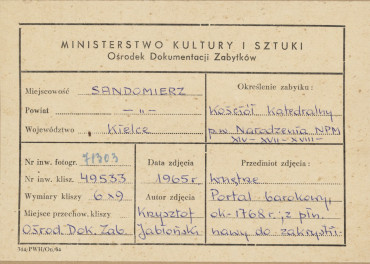 MINISTERSTWO KULTURY I SZTUKI
Ośrodek Dokumentacji Zabytków
Miejscowość SANDOMIERZ
Powiat — „ —
Województwo Kielce
Określenie zabytku:
Kościół Katedralny
p.w. Narodzenia NPM
XIV - XVII - XVIII
Nr inw. fotogr. 71303
Nr inw. klisz. 49533
Wymiary kliszy 6x9
Miejsce przechow. kliszy
Ośrod. Dok. Zab.
Data zdjęcia
1965 r.
Autor zdjęcia
Krzysztof
Jabłoński
Przedmiot zdjęcia:
wnętrze
Portal barokowy,
ok. 1768 r.; z płn.
nawy do zakrystii.